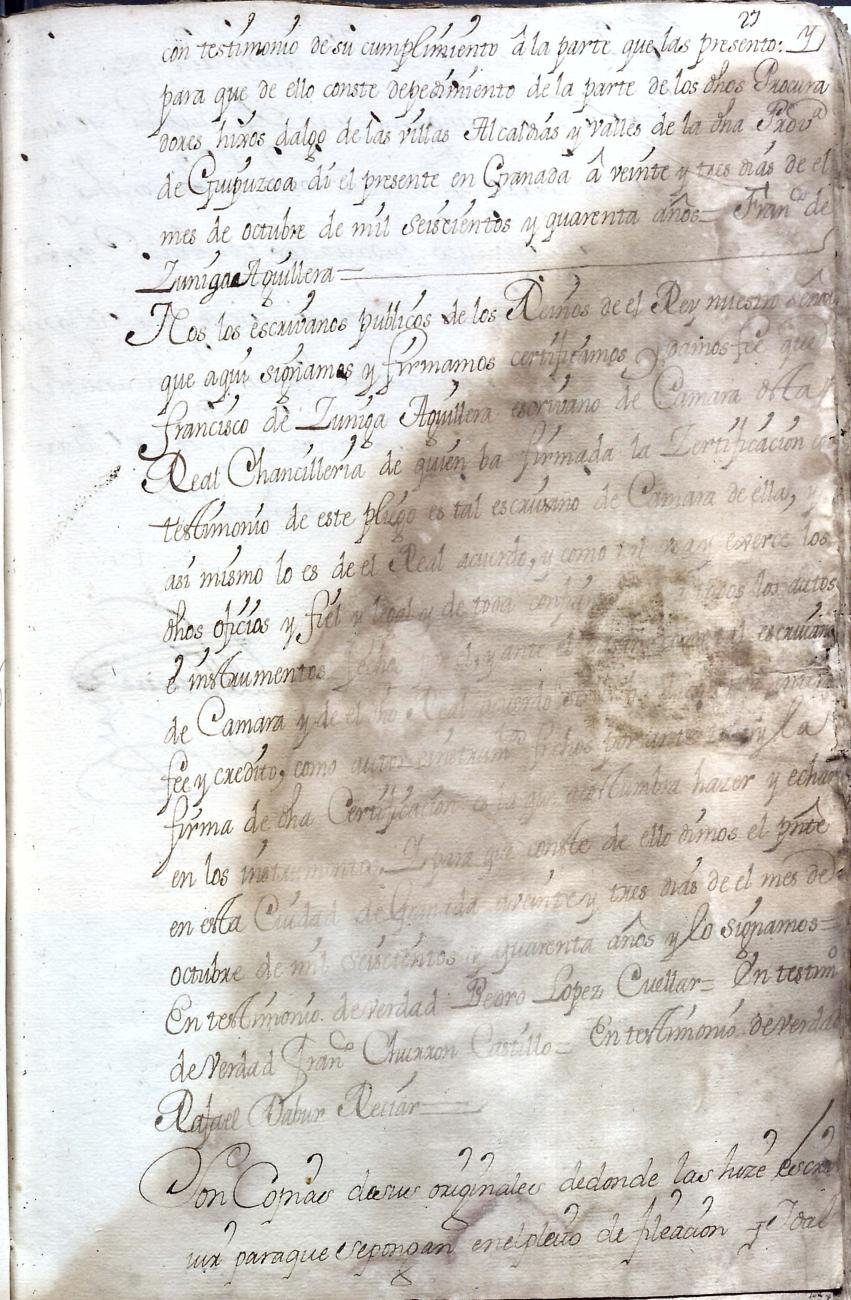 27
con testimonio de su cumplimiento â la parte que las presento: y
para que de ello conste depedimiento de la parte de los dhos Procura
dores hixos dalgo de las villas Alcaldias y Valles de la dha Provᵃ
de Guipuzcoa di el presente en Granada â veinte y tres dias de el
mes de octubre de mil seiscientos y quarenta años= Franᶜᵒ de
Zuniga Aguillera=
Nos los escrivanos publicos de los Reinos de el Rey nuestro señor
que aqui signamos y firmamos certificamos y damos fee que
francisco de Zuniga Aguillera escrivano de Camara desta
Real Chancilleria de quien ba firmada la Zertificacion
testimonio de este pliego es tal escrivano de Camara de ella, y
asi mismo lo es de el Real acuerdo, y como tal usa y exerce los
dhos oficios y fiel y legal y de toda confian todos los autos
e instrumentos fecho y ante el escrivano
de Camara y de el dho Real acuerdo
fee y credito, como autos einstrumᵗᵒˢ fechos por ante tal y la
firma de dha Certificacion es la que acostumbra hazer y echar
en los instrumentos. Y para que conste de ello dimos el pnte
en esta Ciudad de Granada aveinte y tres dias de el mes de
octubre de mil seiscientos y quarenta años y lo signamos=
En testimonio de verdad Pedro Lopez Cuellar= En testimᵒ
de Verdad Franᶜᵒ Churron Castillo= En testimonio de verdad
Rafael Dabur Rectar
Son Copias desus originales dedonde las hize escri
uir paraque sepongan enelpleito de fileacion y Idal